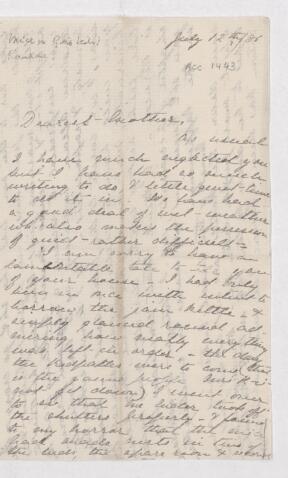 July 12th/86
ACC 1443
Dearest Mother,
As usual
I have much neglected you
but I have had so much
writing to do & little quiet time
to do it in. We have had
a good deal of wet weather
wh. also makes the possession
of quiet rather difficult –
I am sorry to have a
lamentable tale to tell you
of your house – I had only
been in once with intent to
borrow the jam kettle – &
simply glanced round ad
miring how neatly everything
was left in order – the day
the were to come that
is the young people Mrs
not
to see that the water
the shutters properly – & found
to my horror that the mice
had made nests in two of
the beds, the spare room &